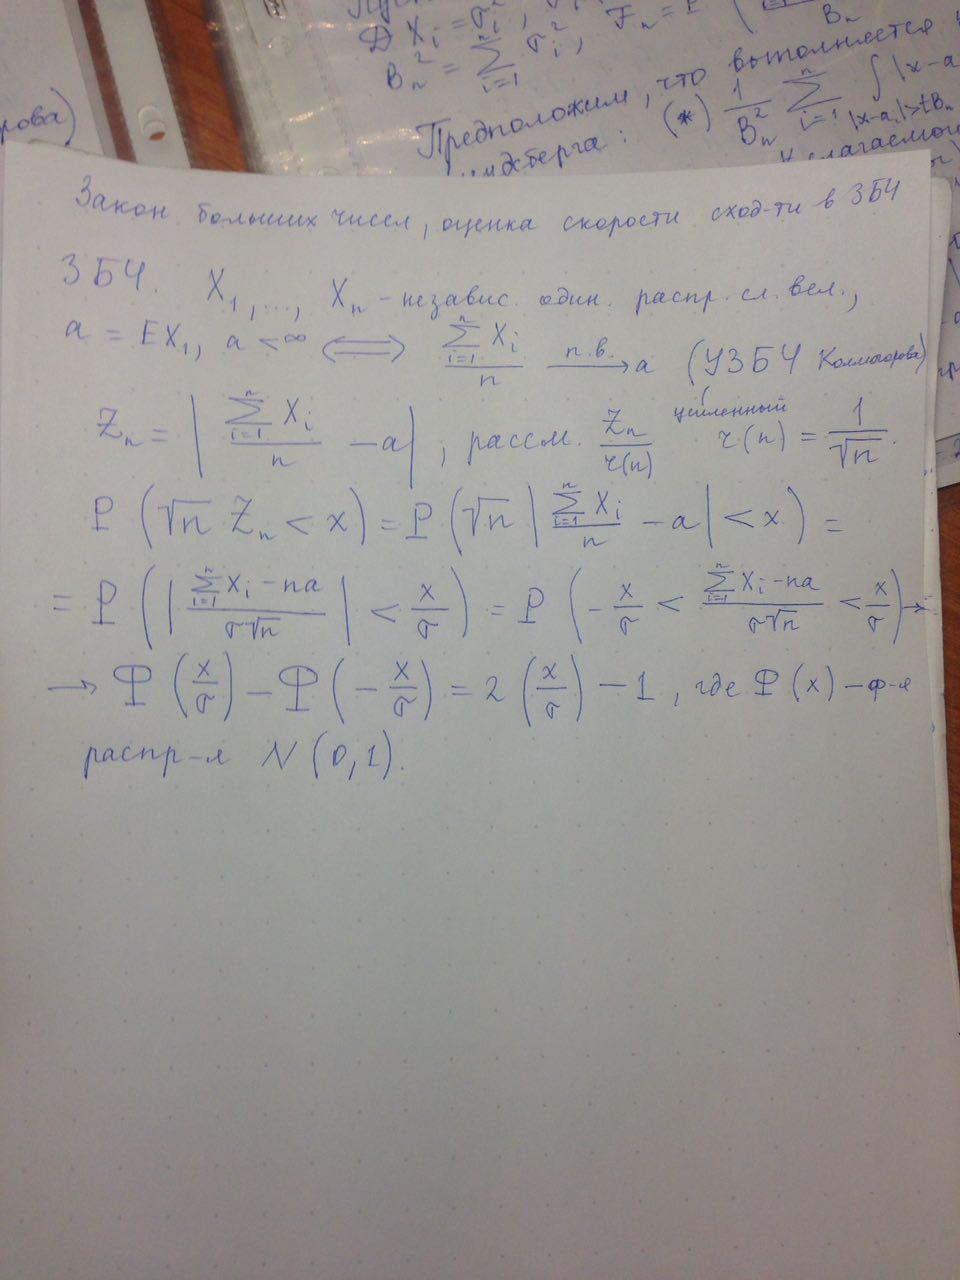 рова)
D X_i = σ_i^2,
B_n^2 = \sum_{i=1}^{n} σ_i^2, F_n = P
B_n
Предположим, что выполняется
индсберга: (*) \frac{1}{B_n^2} \sum_{i=1}^{n} \int_{|x-a_i|>tB_n} |x-a
слагаемого
Закон больших чисел, оценка скорости сход-ти в ЗБЧ
ЗБЧ. X_1, ..., X_n - независ. один. распр. сл. вел.,
a = EX_1, a < ∞ ⟺ \frac{\sum_{i=1}^{n} X_i}{n} \xrightarrow{п.в.} a (УЗБЧ Колмогорова)
усиленный
Z_n = | \frac{\sum_{i=1}^{n} X_i}{n} - a |, рассм. \frac{Z_n}{r(n)} r(n) = \frac{1}{\sqrt{n}}.
P (\sqrt{n} Z_n < x) = P (\sqrt{n} | \frac{\sum_{i=1}^{n} X_i}{n} - a | < x) =
= P ( | \frac{\sum_{i=1}^{n} X_i - na}{σ\sqrt{n}} | < \frac{x}{σ} ) = P ( - \frac{x}{σ} < \frac{\sum_{i=1}^{n} X_i - na}{σ\sqrt{n}} < \frac{x}{σ} ) →
→ Ф (\frac{x}{σ}) - Ф (- \frac{x}{σ}) = 2 (\frac{x}{σ}) - 1, где Ф (x) - ф-я
распр-я N (0,1).